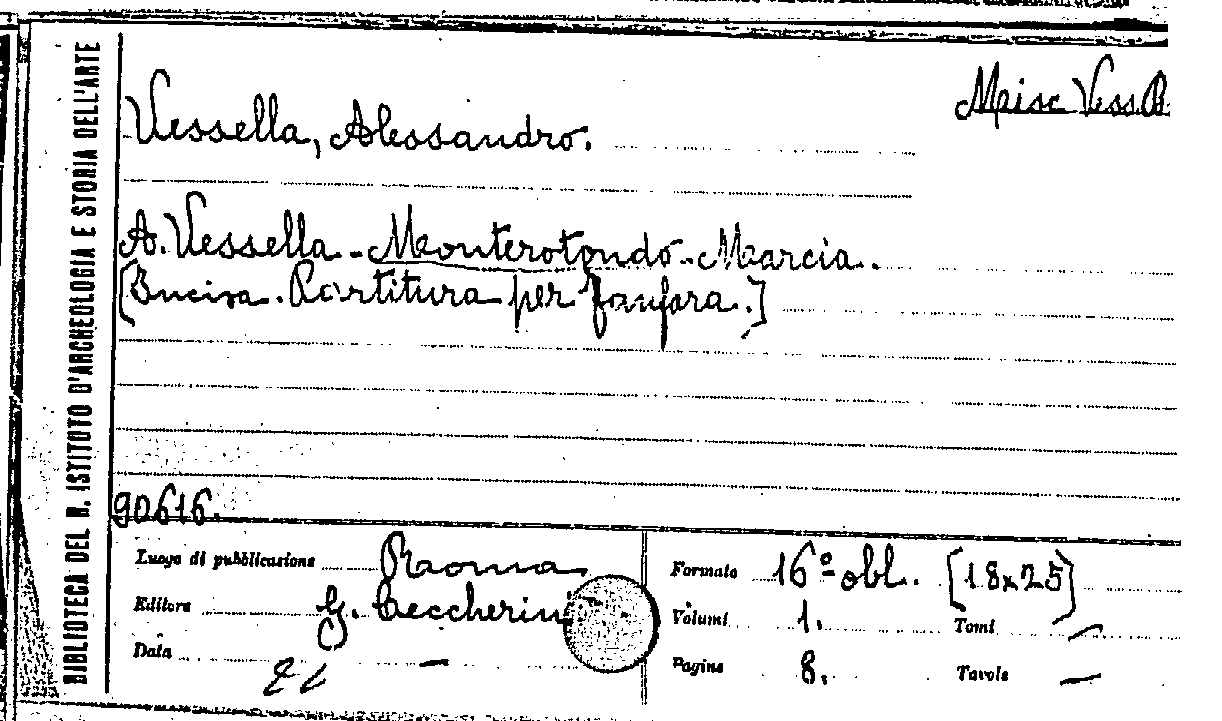 BIBLIOTECA DEL R. ISTITUTO D'ARCHEOLOGIA E STORIA DELL'ARTE
Misc. Vess. B.
Vessella, Alessandro.
A. Vessella - Monterotondo - Marcia.
[Incisa. Partitura per fanfara.]
90616.
Luogo di pubblicazione Roma
Editore G. Ceccherin
Data —
Formato 16º obl. [18x25]
Volumi 1. Tomi —
Pagine 8. Tavole —